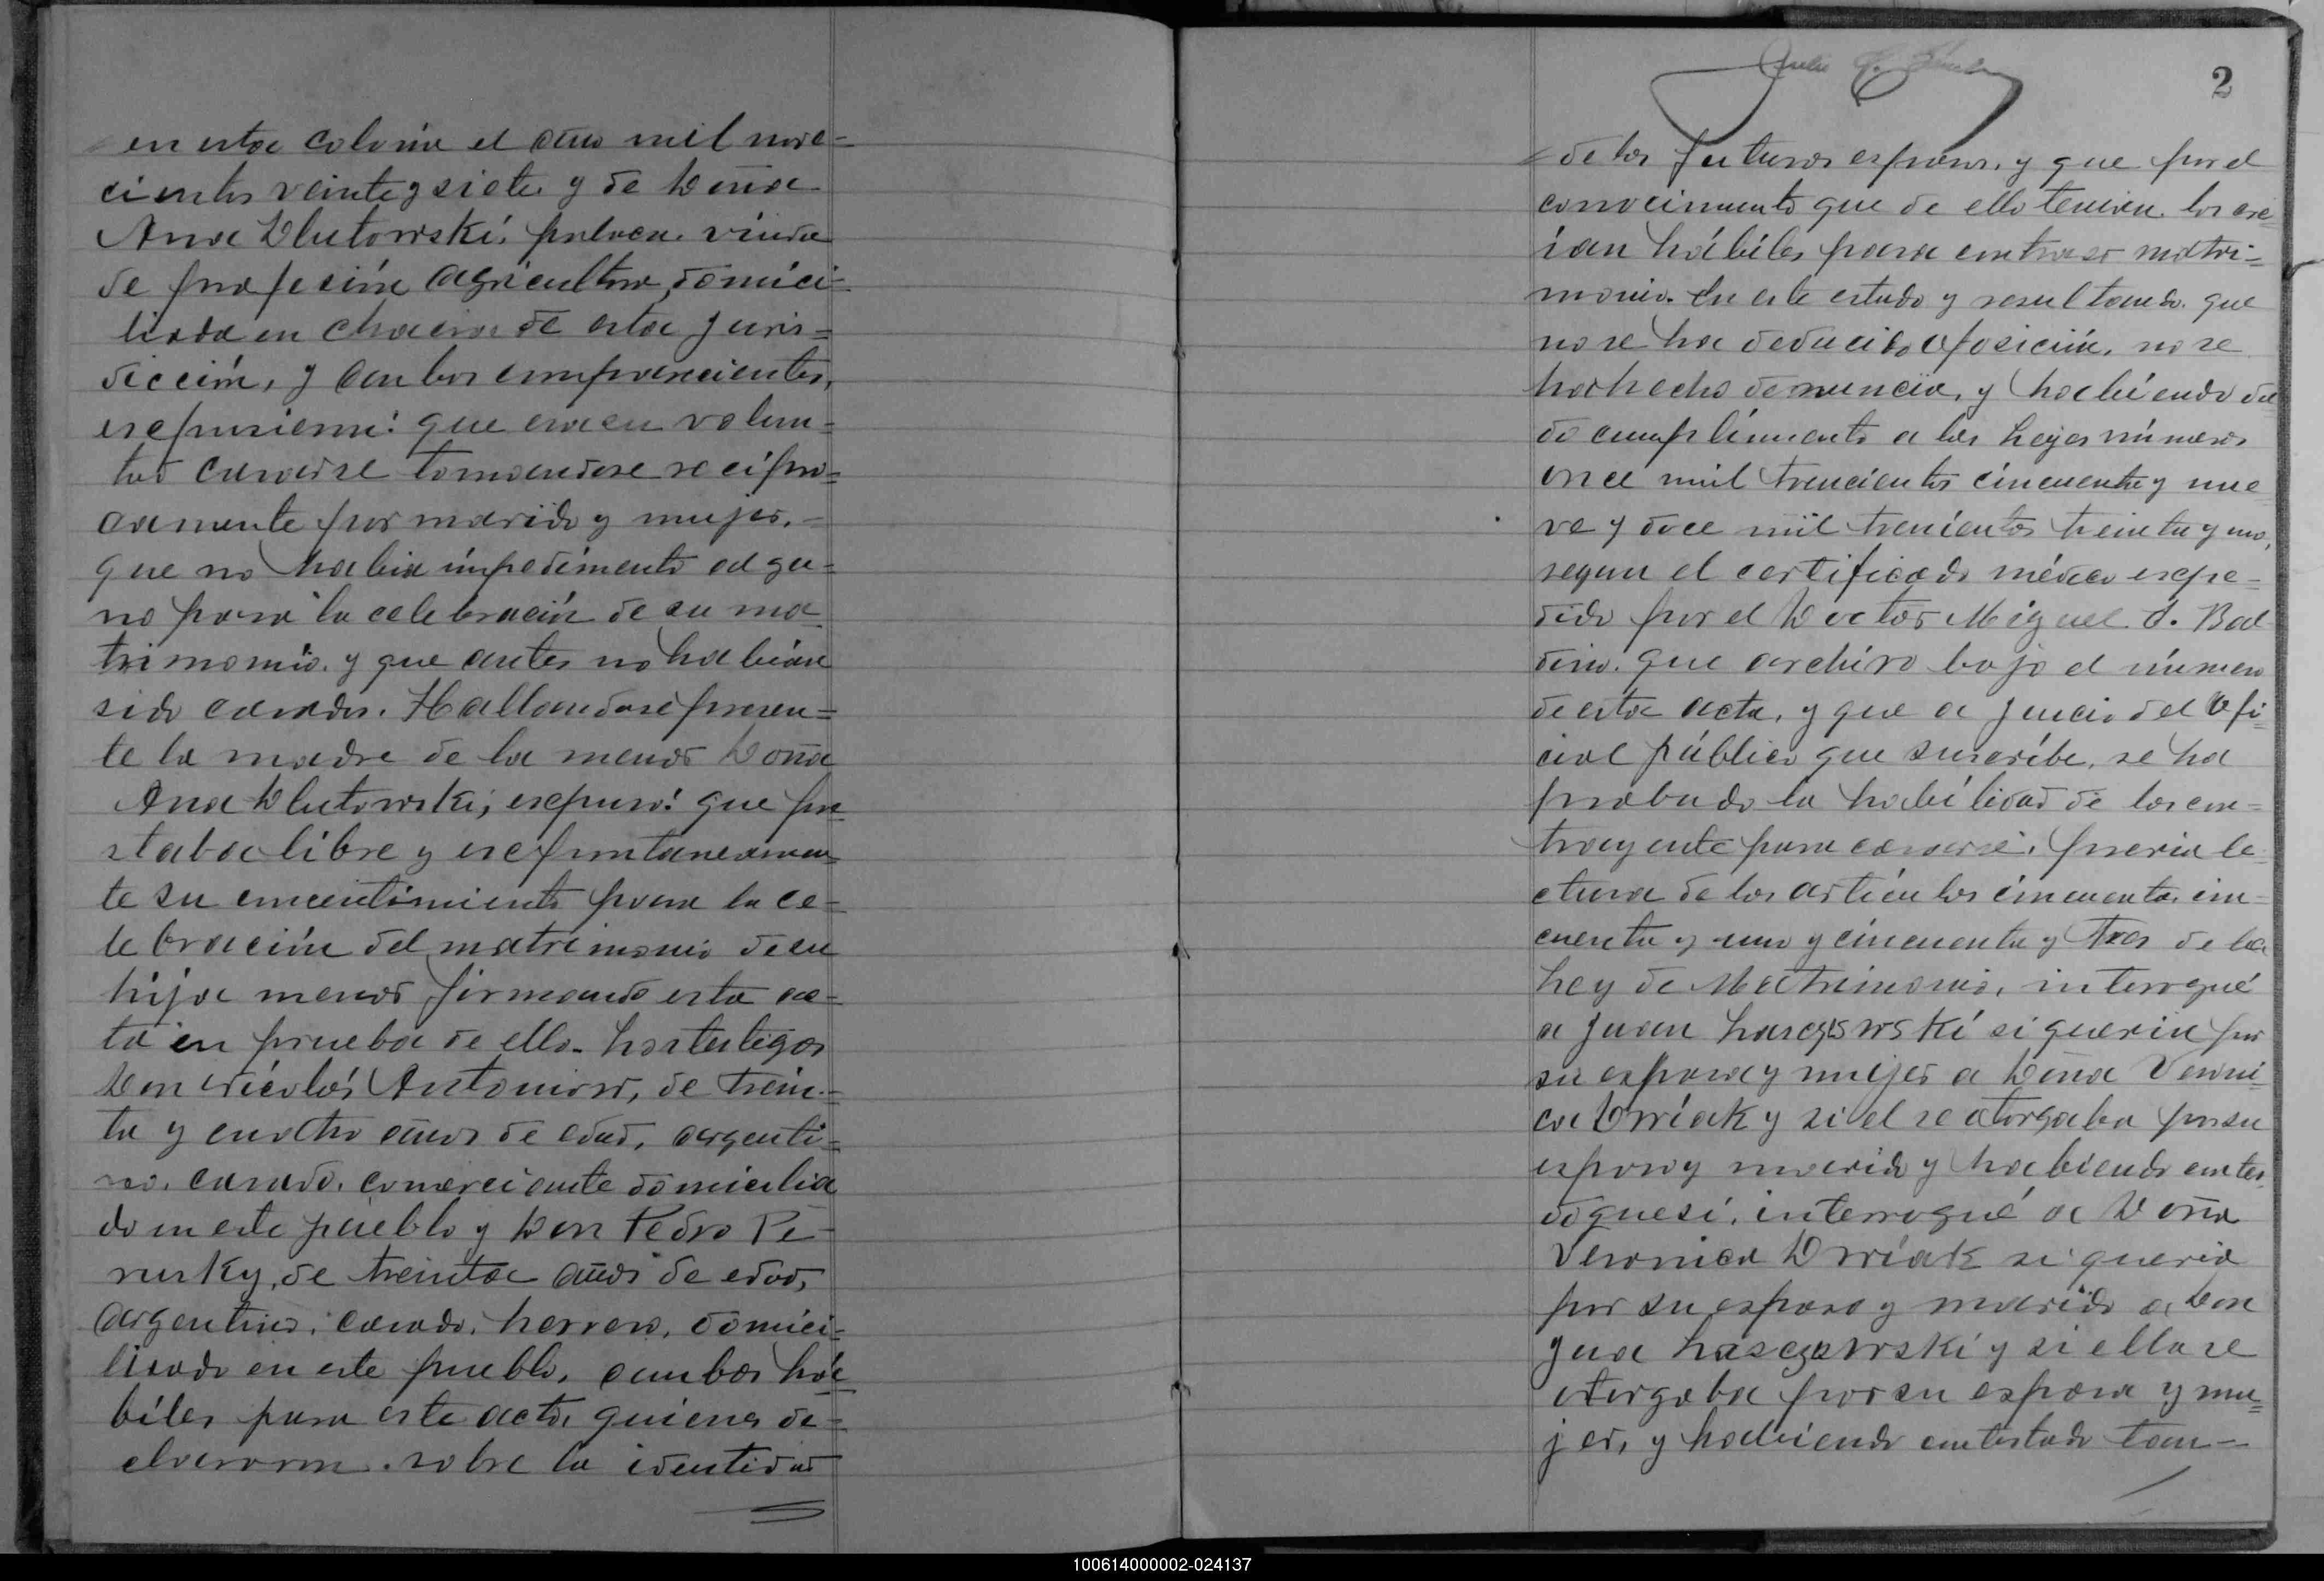 en esta colonia el año mil nove=
cientos veinte y siete y de Doña
Ana Dlutowski, polaca. viuda
de profesión agricultora, domici=
liada en chacra de esta juris=
dicción, y ambos comparecientes,
expusieron: que era su volun=
tad casarse tomandose recípro=
camente por marido y mujer. =
que no habia impedimento algu=
no para la celebración de su ma
trimonio. y que antes no habian
sido casados. Hallandose presen=
te la madre de la menor Doña
Ana Dlutowski, expuso: que pre
staba libre y expontaneamen=
te su concentimiento para la ce=
lebración del matrimonio de su
hija menor firmando esta ac=
ta en prueba de ello. Los testigos
Don Nicolás Antoniow, de trein=
ta y cuatro años de edad, argenti=
no. casado. comerciante domicilia
do en este pueblo y Don Pedro Pe
rusky, de treinta años de edad,
argentino. casado. herrero. domici=
liado en este pueblo, ambos há=
biles para este acto, quienes de=
clararon. sobre la identidad
2
de los futuros esposos. y que por el
conocimiento que de ello tenian. los cre
ían hábiles para contraer matri=
monio. En este estado y resultando. que
no se ha deducido oposición, no se
ha hecho denuncia, y habiendo da
do cumplimiento a las Leyes números
once mil trescientos cincuenta y nue
ve y doce mil trescientos treinta y uno,
segun el certificado médico expe=
dido por el Doctor Miguel A. Bal
dino. que archivo bajo el número
de esta acta, y que a juicio del Ofi
cial público que suscribe, se ha
probado la habilidad de los con=
trayente para casarse. previa le
ctura de los artículos cincuenta, cin=
cuenta y uno y cincuenta y tres de la
Ley de Matrimonio, interrogué
a Juan Lasczowski si queria por
su esposa y mujer a Doña Veroni
ca Dwiak y si el se otorgaba por su
esposo y marido y habiendo contes
do que sí. interrogué a Doña
Veronica Dwiak si queria
por su esposo y marido a Don
Jua Lasczowski y si ella se
otorgaba por su esposa y mu=
jer, y habiendo contestado tam=
100614000002-024137